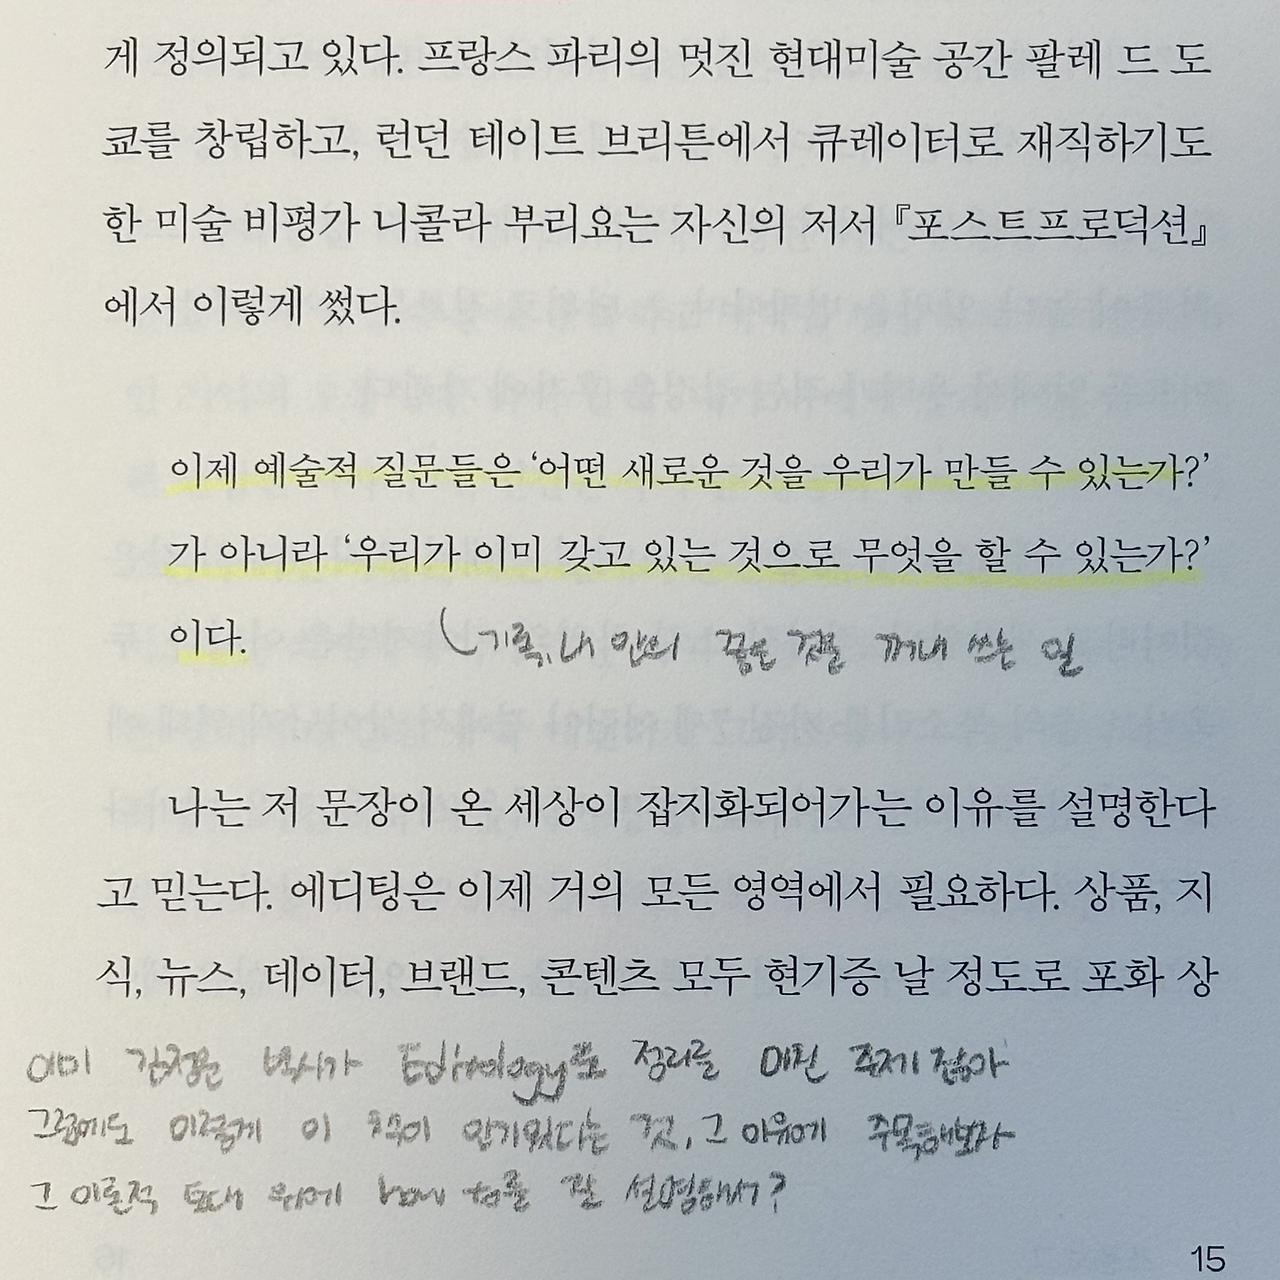 게 정의되고 있다. 프랑스 파리의 멋진 현대미술 공간 팔레 드 도
쿄를 창립하고, 런던 테이트 브리튼에서 큐레이터로 재직하기도
한 미술 비평가 니콜라 부리요는 자신의 저서 『포스트프로덕션』
에서 이렇게 썼다.
이제 예술적 질문들은 ‘어떤 새로운 것을 우리가 만들 수 있는가?’
가 아니라 ‘우리가 이미 갖고 있는 것으로 무엇을 할 수 있는가?’
이다.
기록, 내 안의 것을 꺼내 쓰는 일
나는 저 문장이 온 세상이 잡지화되어가는 이유를 설명한다
고 믿는다. 에디팅은 이제 거의 모든 영역에서 필요하다. 상품, 지
식, 뉴스, 데이터, 브랜드, 콘텐츠 모두 현기증 날 정도로 포화 상
이미 김정운 박사가 Editology로 정리를 마친 주제 잖아
그럼에도 이렇게 이 책이 인기있다는 것, 그 이유에 주목해보자
그 이론적 토대 위에 how to를 잘 설명해서?
15